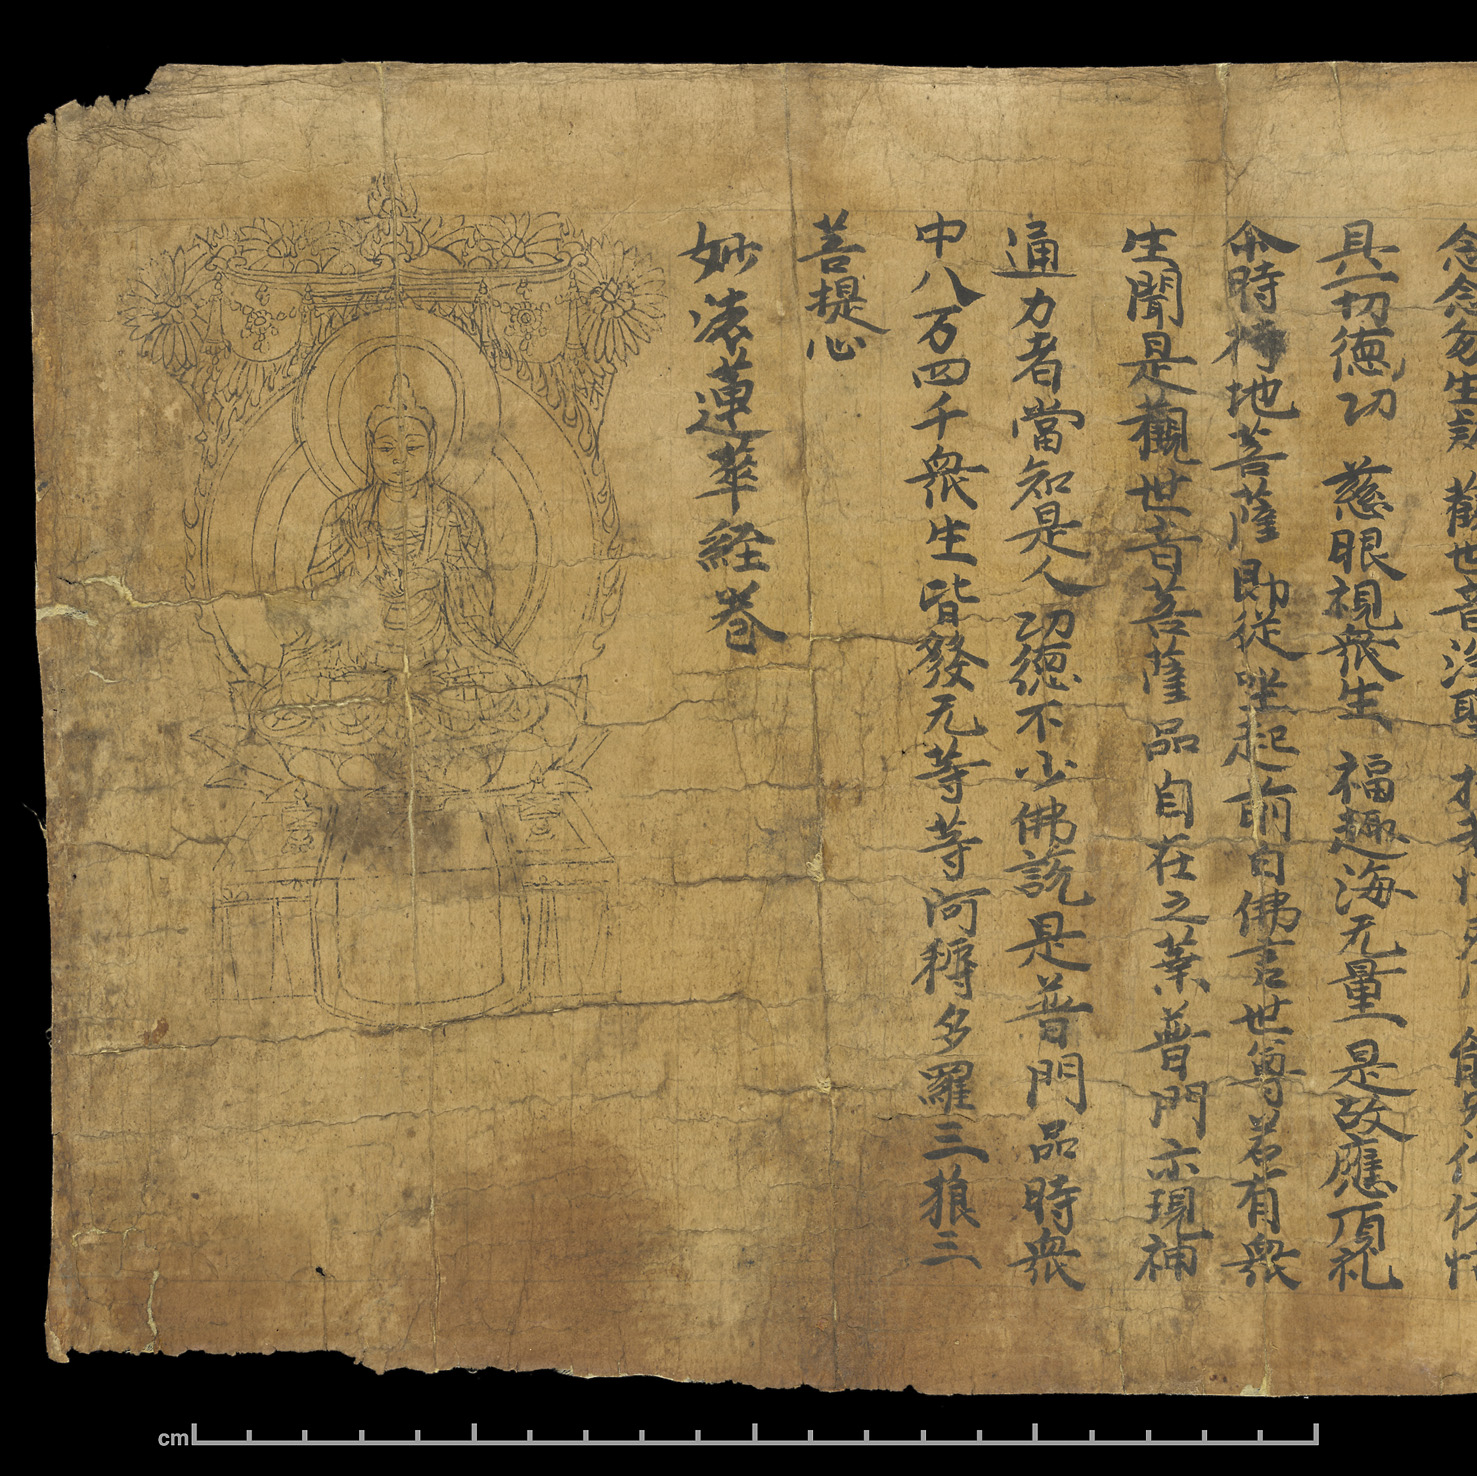 念念勿生疑 觀世音淨聖
具一切德功 慈眼視衆生 福趣海无量 是故應頂礼
尒時持地菩薩即從坐起前白佛言世尊若有衆
生聞是觀世音菩薩品自在之業普門示現神
通力者當知是人功德不少佛說是普門品時衆
中八万四千衆生皆發无等等阿耨多羅三狼三
菩提心
妙法蓮華經卷
cm